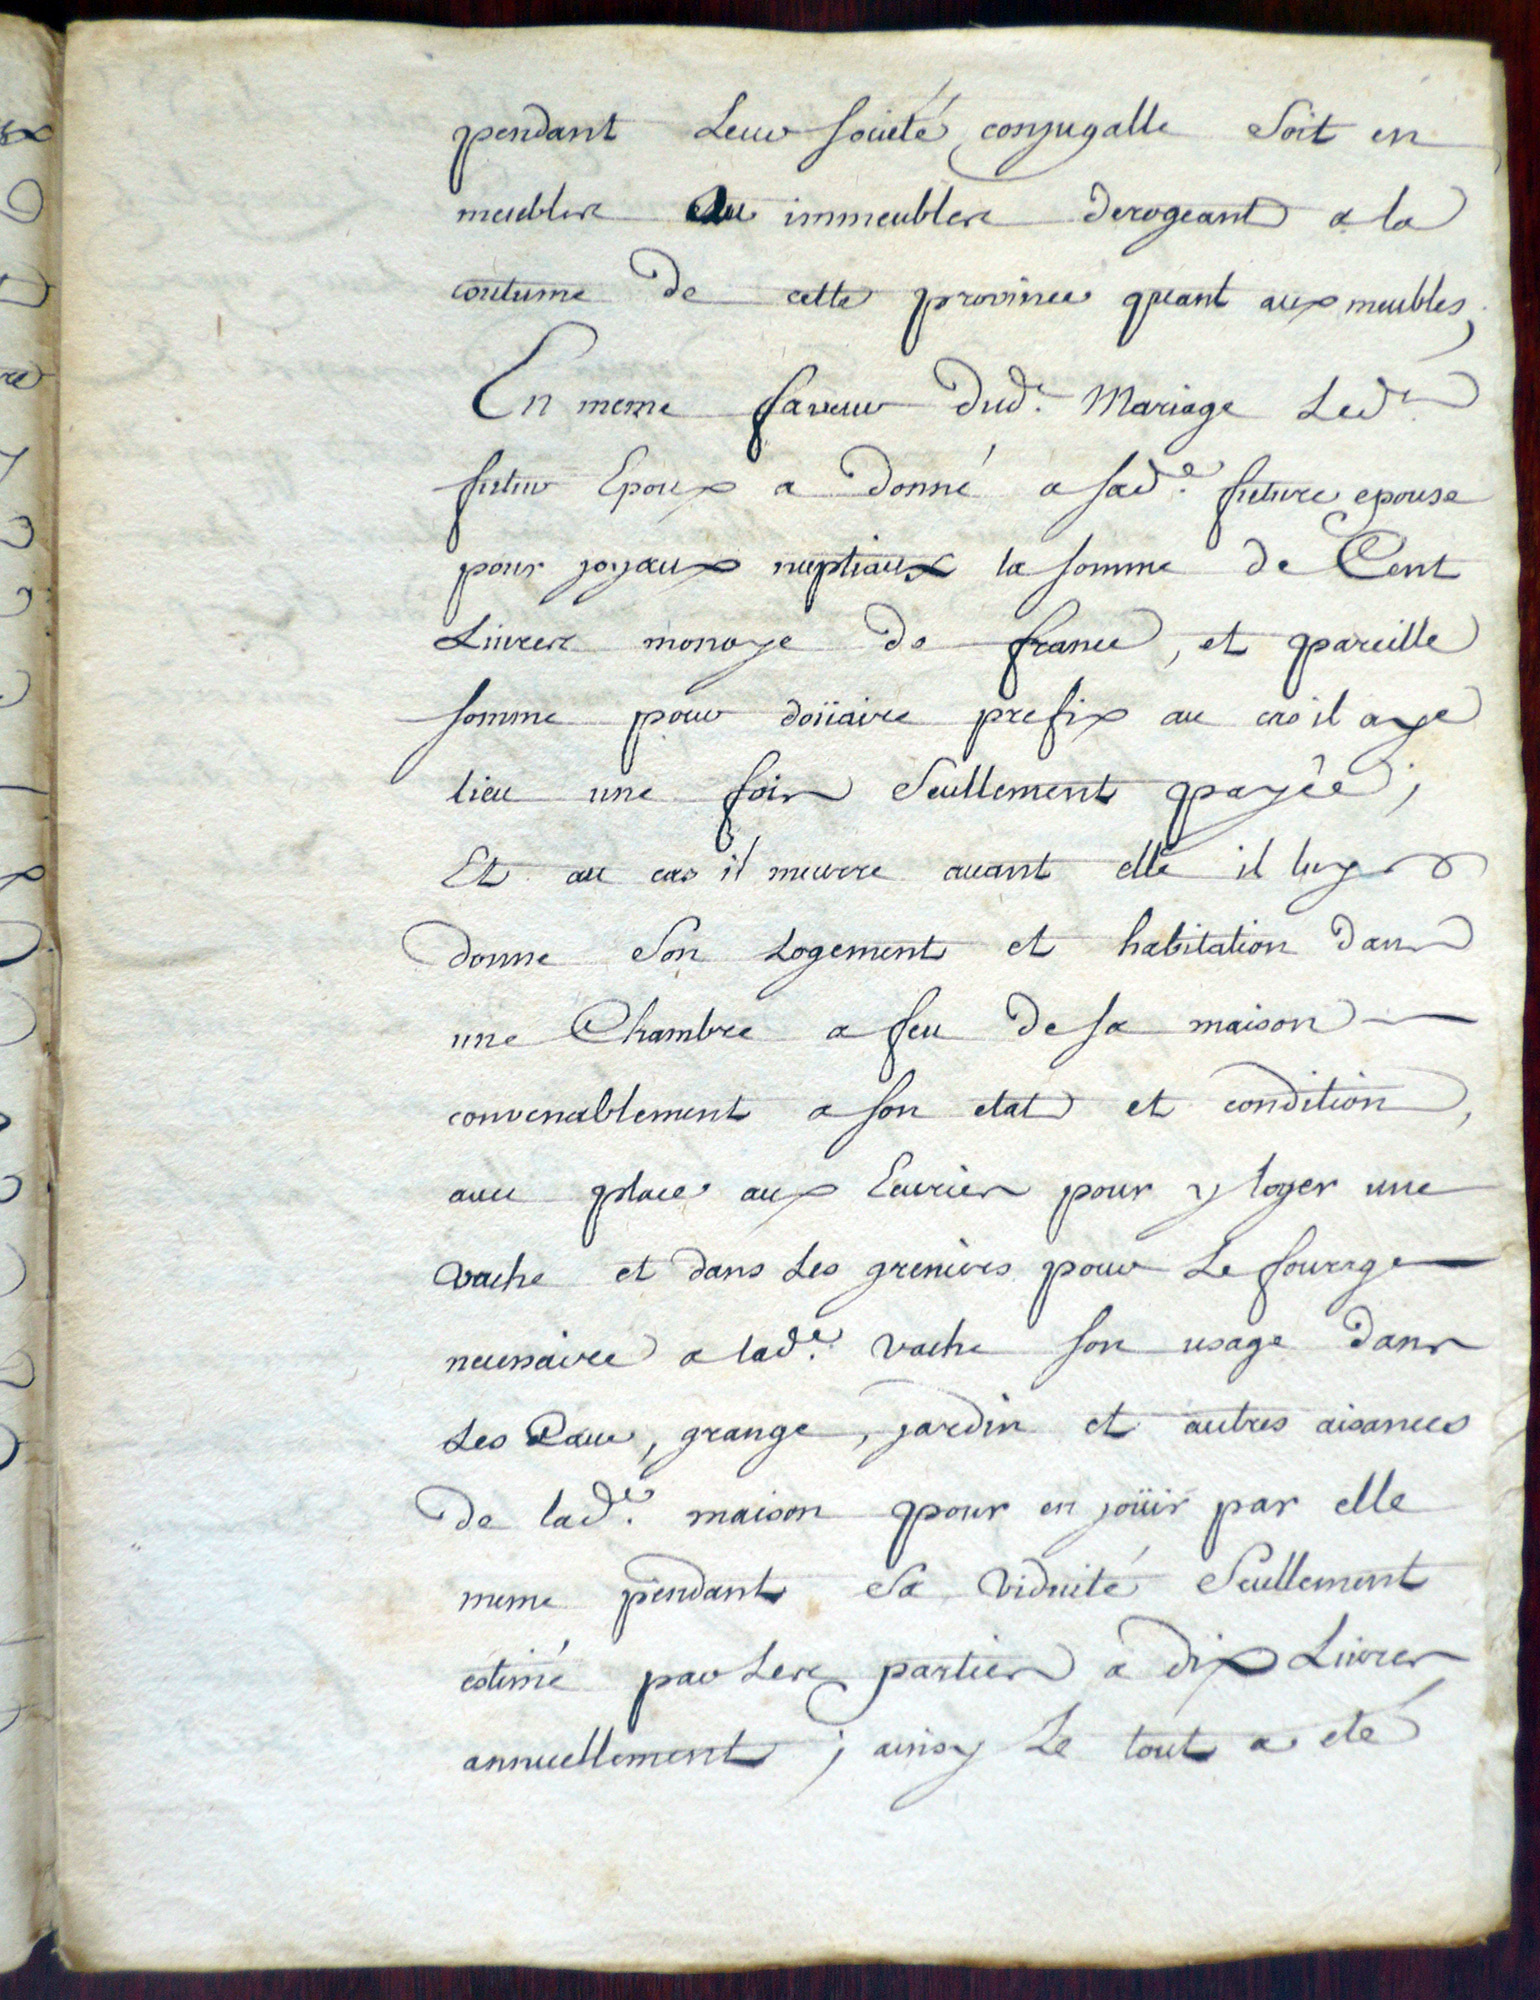 pendant Leur société conjugalle Soit en
meubles ou immeubles derogeant a la
coutume De cette province quant aux meubles,
En meme faveur Dud.t Mariage Led.t
futur Epoux a Donné a sad.e future epouse
pour joyaux nuptiaux la somme De Cent
Livres monoye De france, et pareille
somme pour doüaire prefix au cas il aye
lieu une fois Seullement payée;
Et au cas il meurre avant elle il luy
Donne Son Logement et habitation Dans
une Chambre a feu De sa maison
convenablement a son etat et condition,
avec place aux Ecuries pour y loger une
vache et Dans Les greniers pour Le fourage
necessaire a lad.e vache son usage Dans
Les Cave, grange, jardin et autres aisances
De lad.e maison pour en joüir par elle
meme pendant Sa viduité Seullement
estimé par Les parties a dix Livres
annuellement; ainsy Le tout a eté